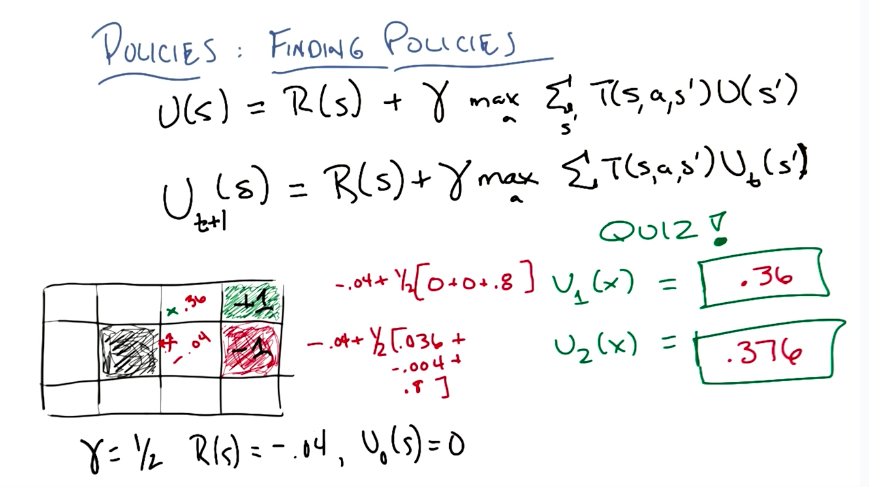 POLICIES : FINDING POLICIES
U(s) = R(s) + γ max_a Σ_s' T(s,a,s')U(s')
U_t+1(s) = R(s) + γ max_a Σ T(s,a,s')U_t(s')
QUIZ!
-.04 + 1/2[0+0+.8] U_1(x) = .36
x .36 +1
-.04 -1
-.04 + 1/2[.036 +
-.004 +
.8]
U_2(x) = .376
γ = 1/2 R(s) = -.04, U_0(s) = 0